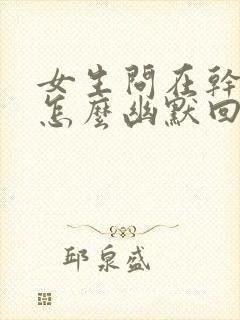 女生問在幹
怎麼幽默回
邱泉盛